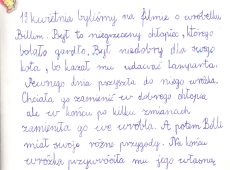 11 kwietnia byliśmy na filmie o wróbelku
Billim. Był to niegrzeczny chłopiec, którego
bolało gardło. Był niedobry dla swego
kota, bo kazał mu udawać lamparta.
Pewnego dnia przyszła do niego wróżka.
Chciała go zamienić w dobrego chłopca
ale w końcu po kilku zmianach
zamieniła go we wróbla. A potem Billi
miał swoje różne przygody. Na końcu
wróżka przywróciła mu jego własną